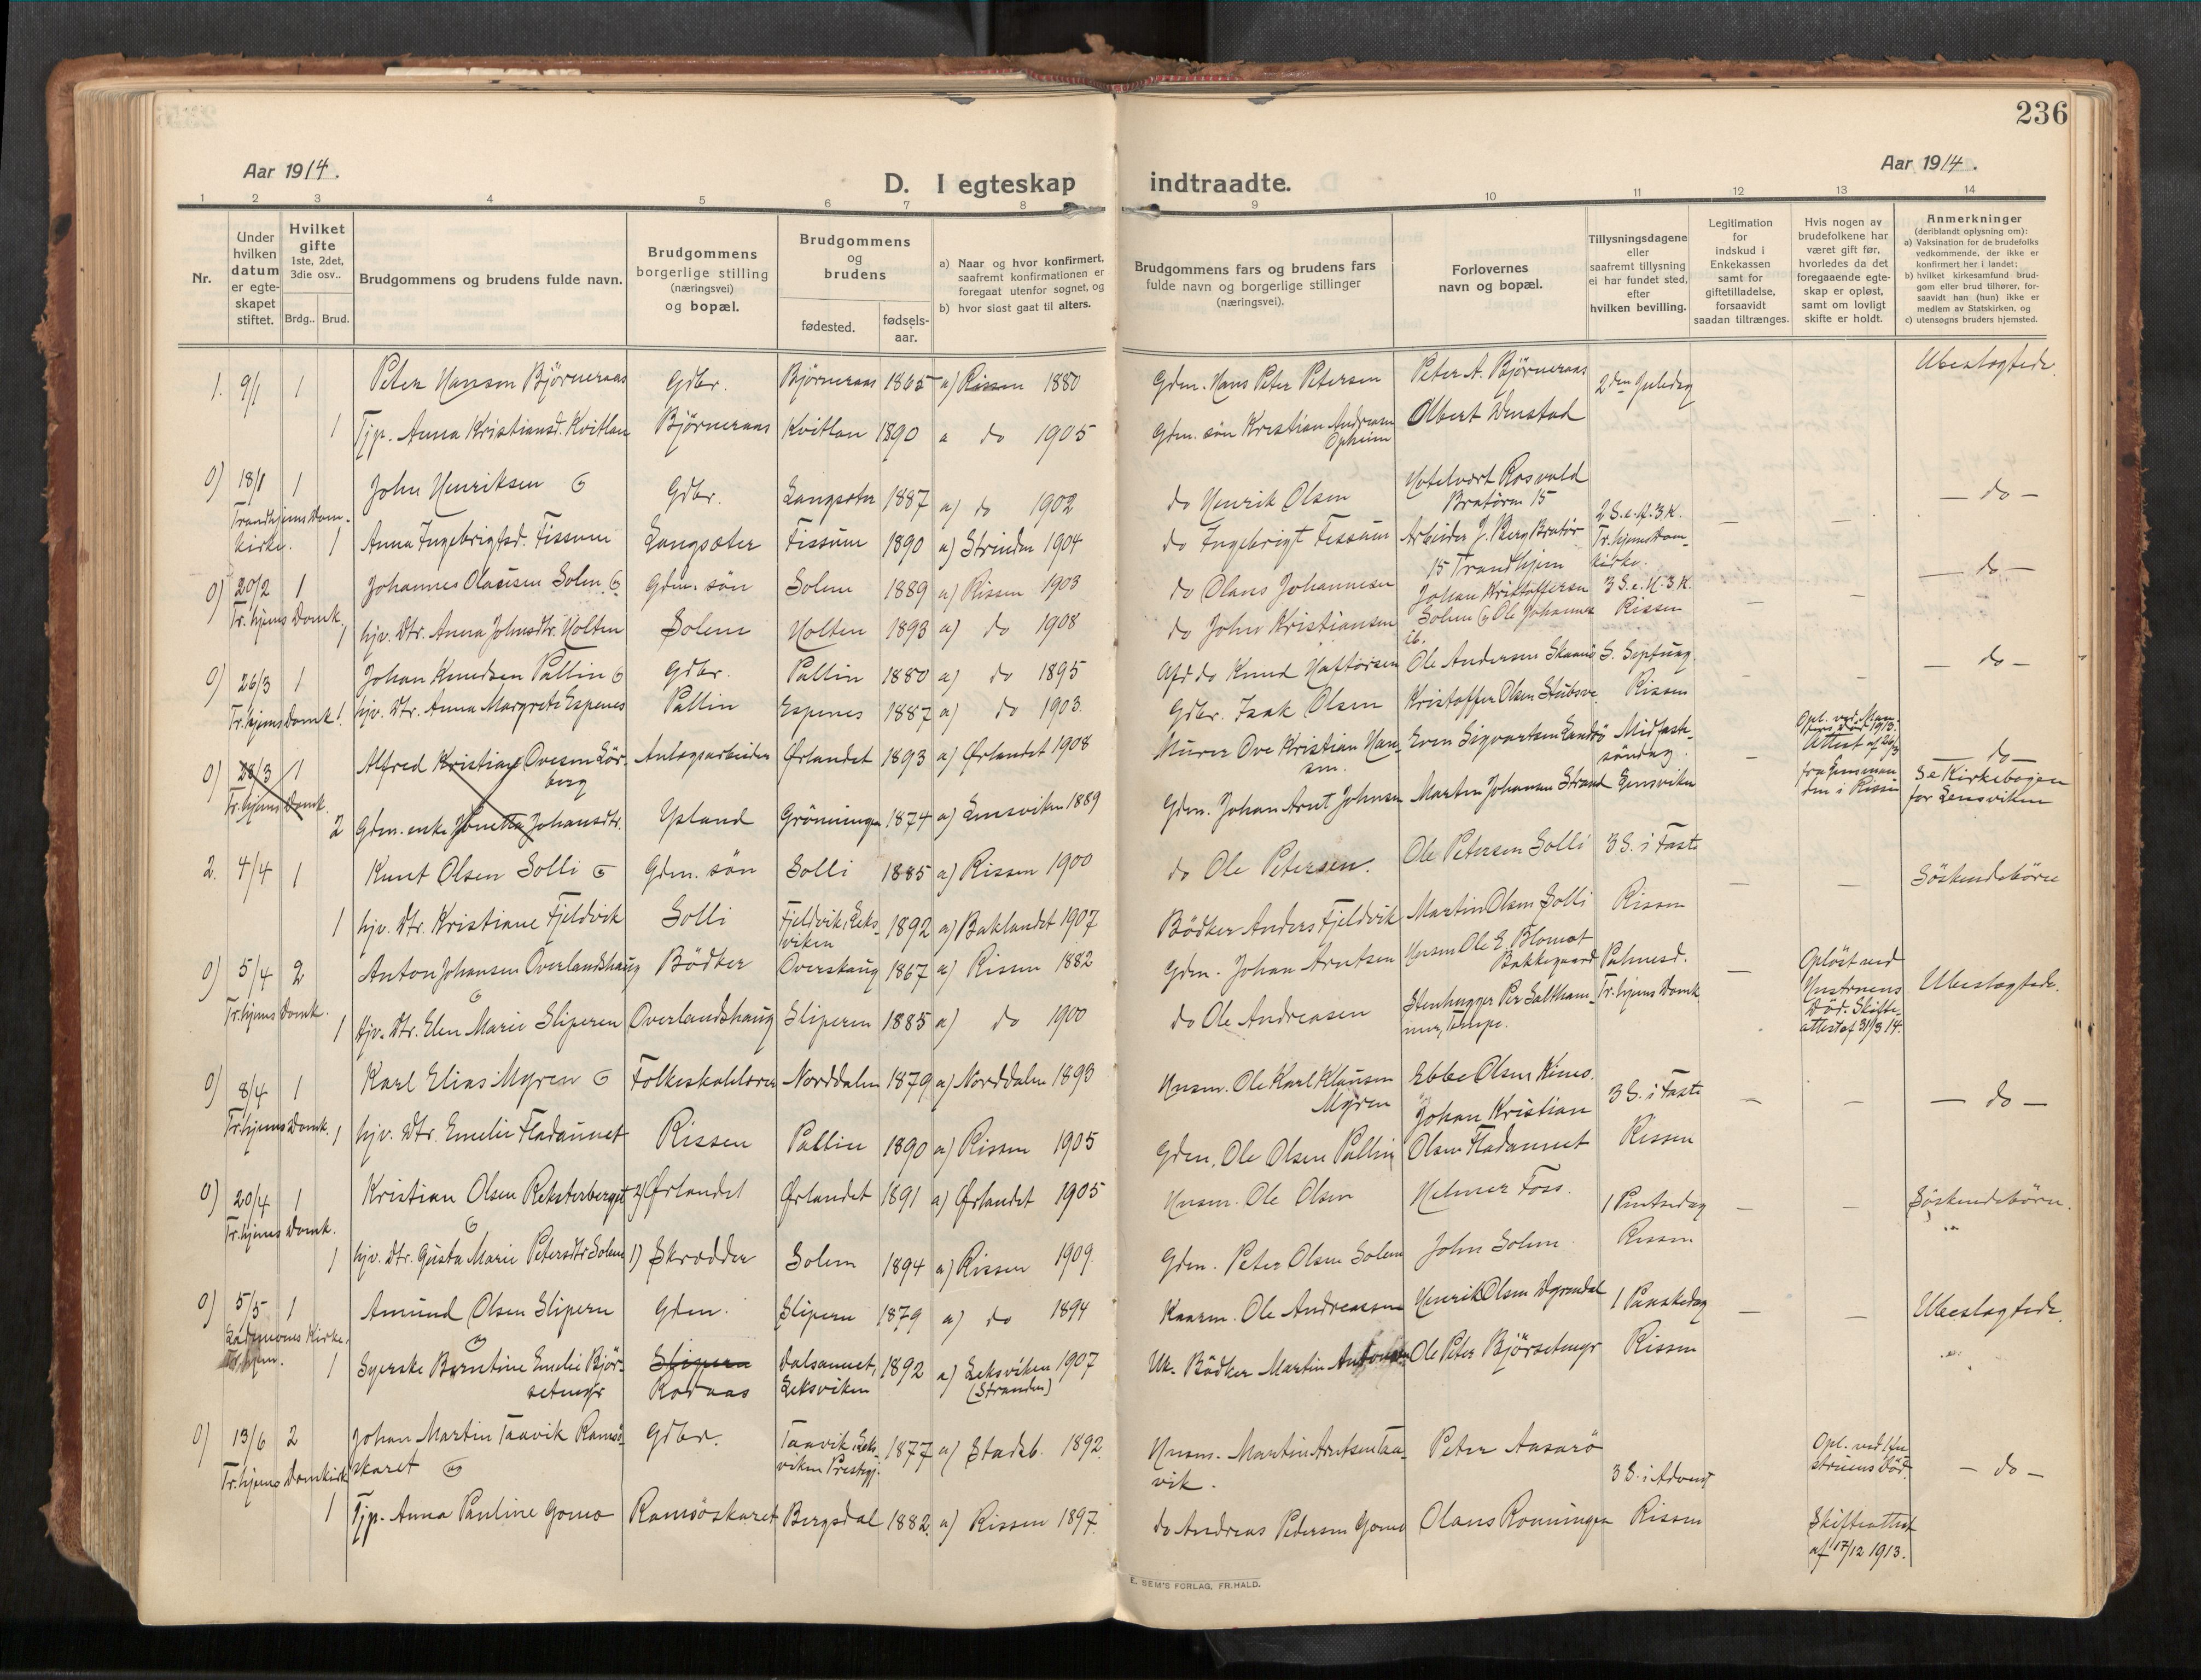 236
Aar 1914.
Aar 1914.
D. I egteskap indtraadte.
1 2 3 4 5 6 7 8 9 10 11 12 13 14
Nr.
Under hvilken datum er egte-skapet stiftet.
Hvilket gifte 1ste, 2det, 3die osv..
Brdg.. Brud.
Brudgommens og brudens fulde navn.
Brudgommens borgerlige stilling (næringsvei) og bopæl.
Brudgommens og brudens
fødested. fødsels-aar.
a) Naar og hvor konfirmert, saafremt konfirmationen er foregaat utenfor sognet, og
b) hvor sidst gaat til alters.
Brudgommens fars og brudens fars fulde navn og borgerlige stillinger (næringsvei).
Forlovernes navn og bopæl.
Tillysningsdagene eller saafremt tillysning ei har fundet sted, efter hvilken bevilling.
Legitimation for indskud i Enkekassen samt for giftetilladelse, forsaavidt saadan tiltrænges.
Hvis nogen av brudefolkene har været gift før, hvorledes da det foregaaende egte-skap er opløst, samt om lovligt skifte er holdt.
Anmerkninger (deriblandt oplysning om):
a) Vaksination for de brudefolks vedkommende, der ikke er konfirmert her i landet;
b) hvilket kirkesamfund brud-gom eller brud tilhører, for-saavidt han (hun) ikke er medlem av Statskirken, og
c) utensogns bruders hjemsted.
1. 9/1 1 Peter Hansen Björneraas Gdbr. Björneraas 1865 a) Rissen 1880 Gdm. Hans Peter Petersen Peter A. Björneraas 2den Juledag Ubeslægtede.
1 Tjp. Anna Kristiansd. Kvitlan Björneraas Kvitlan 1890 a do 1905 Gdm. sön Kristian Andreasen Opheim Olbert Denstad
0) 18/1 1 John Henriksen G Gdbr. Langsæter 1887 a) do 1902 do Henrik Olsen Hotelvært Rosvold Bratören 15 2 S. e. H. 3 K. — do —
Trondhjems Dom-kirke. 1 Anna Ingebrigtsd. Fissum Langsæter Fissum 1890 a) Strinden 1904 do Ingebrigt Fissum Arbeider J. Berg Bratör 15 Trondhjem Tr.hjems Dom-kirke. — —
0) 20/2 1 Johannes Olausen Solem G Gdm. sön Solem 1889 a) Rissen 1903 do Olaus Johannesen Johan Kristoffersen 3 S. e. H. 3 K. — do —
Tr.hjems Domk. 1 hjv. Dtr. Anna Johnsdtr. Holten Solem Holten 1893 a) do 1908 do John Kristiansen Solem G Ole Johannes ib. Rissen — —
0) 26/3 1 Johan Knudsen Pallin G Gdbr. Pallin 1880 a) do 1895 Afd do Knud Haftorsen Ole Andersen Skaanö S. Septuag. — do —
Tr.hjems Domk. 1 hjv. Dtr. Anna Margrete Espenes Pallin Espenes 1887 a) do 1903 Gdbr. Isak Olsen Kristoffer Olsen Stubsve Rissen — —
0) 28/3 1 Alfred Kristian Ovesen Lör-berg Anlægsarbeider Ørlandet 1893 a) Ørlandet 1908 Murer Ove Kristian Han-sen. Even Sigvartsen Landrö Midfaste-söndag. — Opl. ved Man-dens Död 1913. Attest af 26/3 fra Lensman-den i Rissen do
Tr.hjems Domk. 2 Gdm. enke Jonetta Johansdtr. Ysland Grönningen 1874 a) Lensviken 1889 Gdm. Johan Arnt Johnsen Martin Johansen Strand Lensviken Se Kirkebogen for Lensviken
2. 4/4 1 Knut Olsen Solli G Gdm. sön Solli 1885 a) Rissen 1900 do Ole Petersen. Ole Petersen Solli 3 S. i Faste — — Söskendebörn
1 hjv. Dtr. Kristiane Fjeldvik Solli Fjeldvik, Leks-viken 1892 a) Baklandet 1907 Bödker Anders Fjeldvik Martin Olsen Solli Rissen
0) 5/4 2 Anton Johansen Overlandshaug G Bödker Overskaug 1867 a) Rissen 1882 Gdm. Johan Arntsen Husm Ole E. Blomat Bakkegaard Palmesd. — Oplöst ved Hustruens Död. Skifte-attest af 31/3 14. Ubeslægtede.
Tr.hjems Domk. 1 Hjv. Dtr. Elen Marie Sliperen Overlandshaug Sliperen 1885 a) do 1900 do Ole Andreasen Stenhugger Per Saltham-mer, Tempe. Tr.hjems Domk.
0) 8/4 1 Karl Elias Myren G Folkeskolelærer Norddalen 1879 a) Norddalen 1893 Husm. Ole Karl Klausen Myren Ebbe Olsen Hemo. 3 S. i Faste — — — do —
Tr.hjems Domk. 1 hjv. Dtr. Emelie Fladaunet Rissen Pallin 1890 a) Rissen 1905 Gdm. Ole Olsen Pallin Johan Kristian Olsen Fladaunet Rissen
0) 20/4 1 Kristian Olsen Reksterberget G 2) Ørlandet Ørlandet 1891 a) Ørlandet 1905 Husm. Ole Olsen Helmer Foss. 1 Pintsedag — — Söskendebörn.
Tr.hjems Domk. 1 hjv. Dtr. Gusta Marie Petersdtr Solem 1) Skrædder Solem 1894 a) Rissen 1909. Gdm. Peter Olsen Solem John Solem Rissen
0) 5/5 1 Amund Olsen Slipern og Gdm. Slipern 1879 a) do 1894 Kaarm. Ole Andreassen Henrik Olsen Dyrendal 1 Paaskedag — — Ubeslægtede.
Lademoens Kirke, Tr.hjem. 1 Syerske Berntine Emelie Björ-setmyr Slipern Roraas Dalsaunet, Leksviken 1892 a) Leksviken (Stranden) 1907 Uk. Bödker Martin Antonsen Ole Peter Björsetmyr Rissen
0) 13/6 2 Johan Martin Taavik Ramsö-skaret og Gdbr. Taavik, Leks-viken Prestegj. 1877 a) Stadsb. 1892 Husm. Martin Arntsen Taa-vik. Peter Aasarö 3 S. i Advent Opl. ved Hu-struens Död. — do —
Tr.hjems Domkirk 1 Tjp. Anna Pauline Gomo Ramsöskaret Bergsdal 1882. a) Rissen 1897. do Andreas Pedersen Gomo Olaus Rönningen Rissen Skifteattest af 17/12 1913.
E. SEM'S FORLAG, FR.HALD.